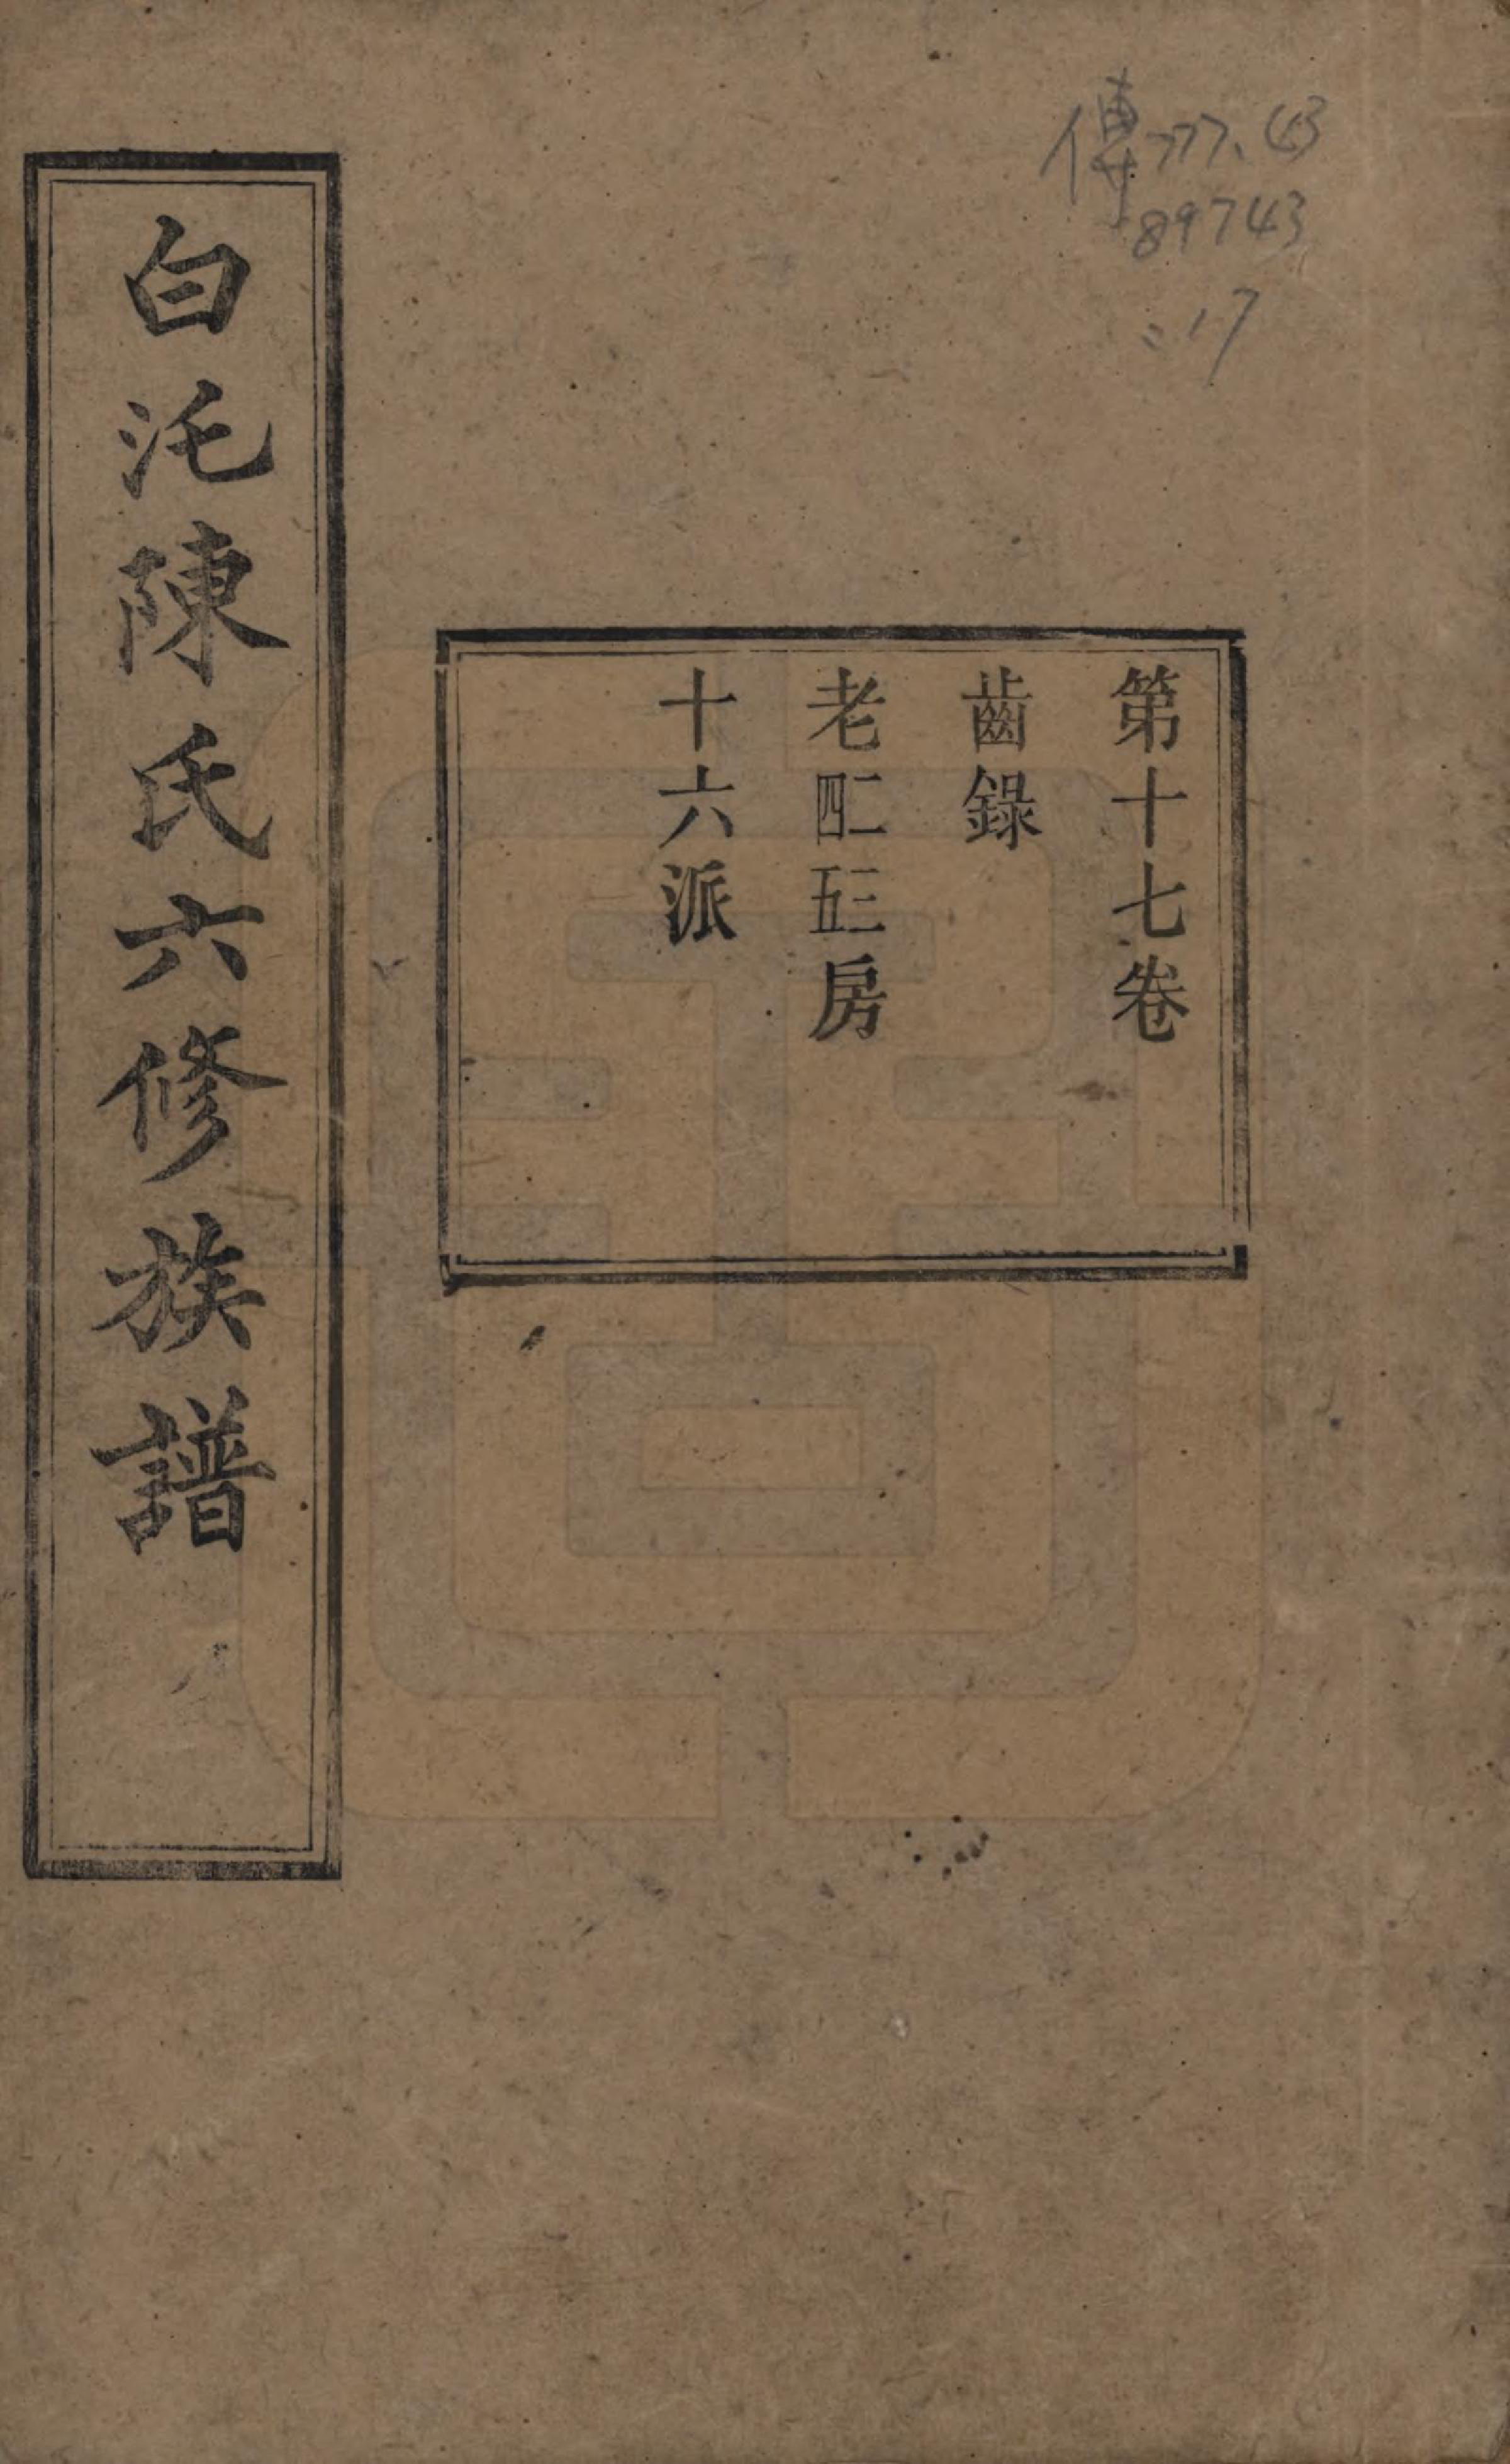 傳777.43
89743
:17
第十七卷
齒錄
老二三四五房
十六派
白沱陳氏六修族譜